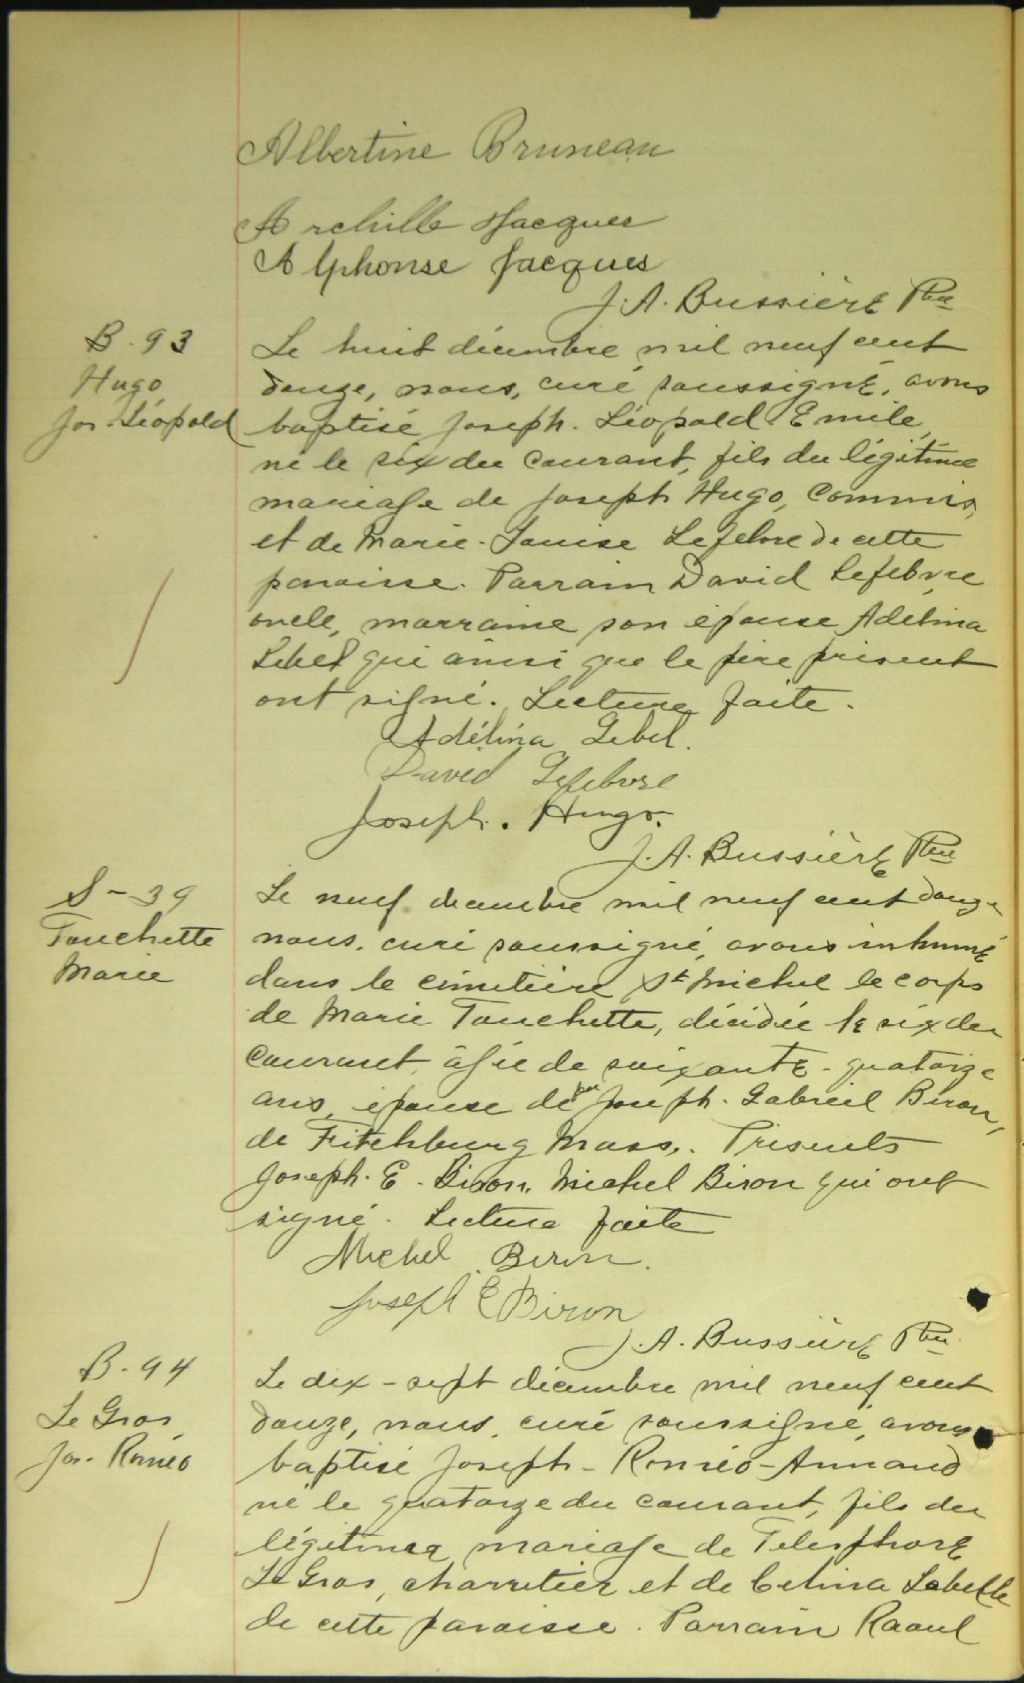 Albertine Bruneau
Archille Jacques
Alphonse Jacques
J. A. Bussière Ptre
B. 93
Hugo
Jos. Léopold
Le huit décembre mil neuf cent
douze, nous, curé soussigné, avons
baptisé Joseph. Léopold Emile,
né le six du courant, fils du légitime
mariage de Joseph Hugo, Commis,
et de Marie-Louise Lefebvre de cette
paroisse. Parrain David Lefebvre
oncle, marraine son épouse Adélina
Lebel qui ainsi que le père présent
ont signé. Lecture faite.
Adélina Lebel.
David Lefebvre
Joseph. Hugo.
J. A. Bussière Ptre
S - 39
Touchette
Marie
Le neuf décembre mil neuf cent douze
nous, curé soussigné, avons inhumé
dans le cimetière St Michel le corps
de Marie Touchette, décédée le six du
courant, âgée de soixante-quatorze
ans, épouse de feu Joseph-Gabriel Biron,
de Fitchburg Mass. Présents
Joseph. E. Biron, Michel Biron qui ont
signé. Lecture faite
Michel Biron.
Joseph E Biron
J. A. Bussière Ptre
B. 94
Le Gros
Jos. Roméo
Le dix-sept décembre mil neuf cent
douze, nous, curé soussigné, avons
baptisé Joseph-Roméo-Armand
né le quatorze du courant, fils du
légitime mariage de Telesphore
Le Gros, charretier et de Celina Labelle
de cette paroisse. Parrain Raoul